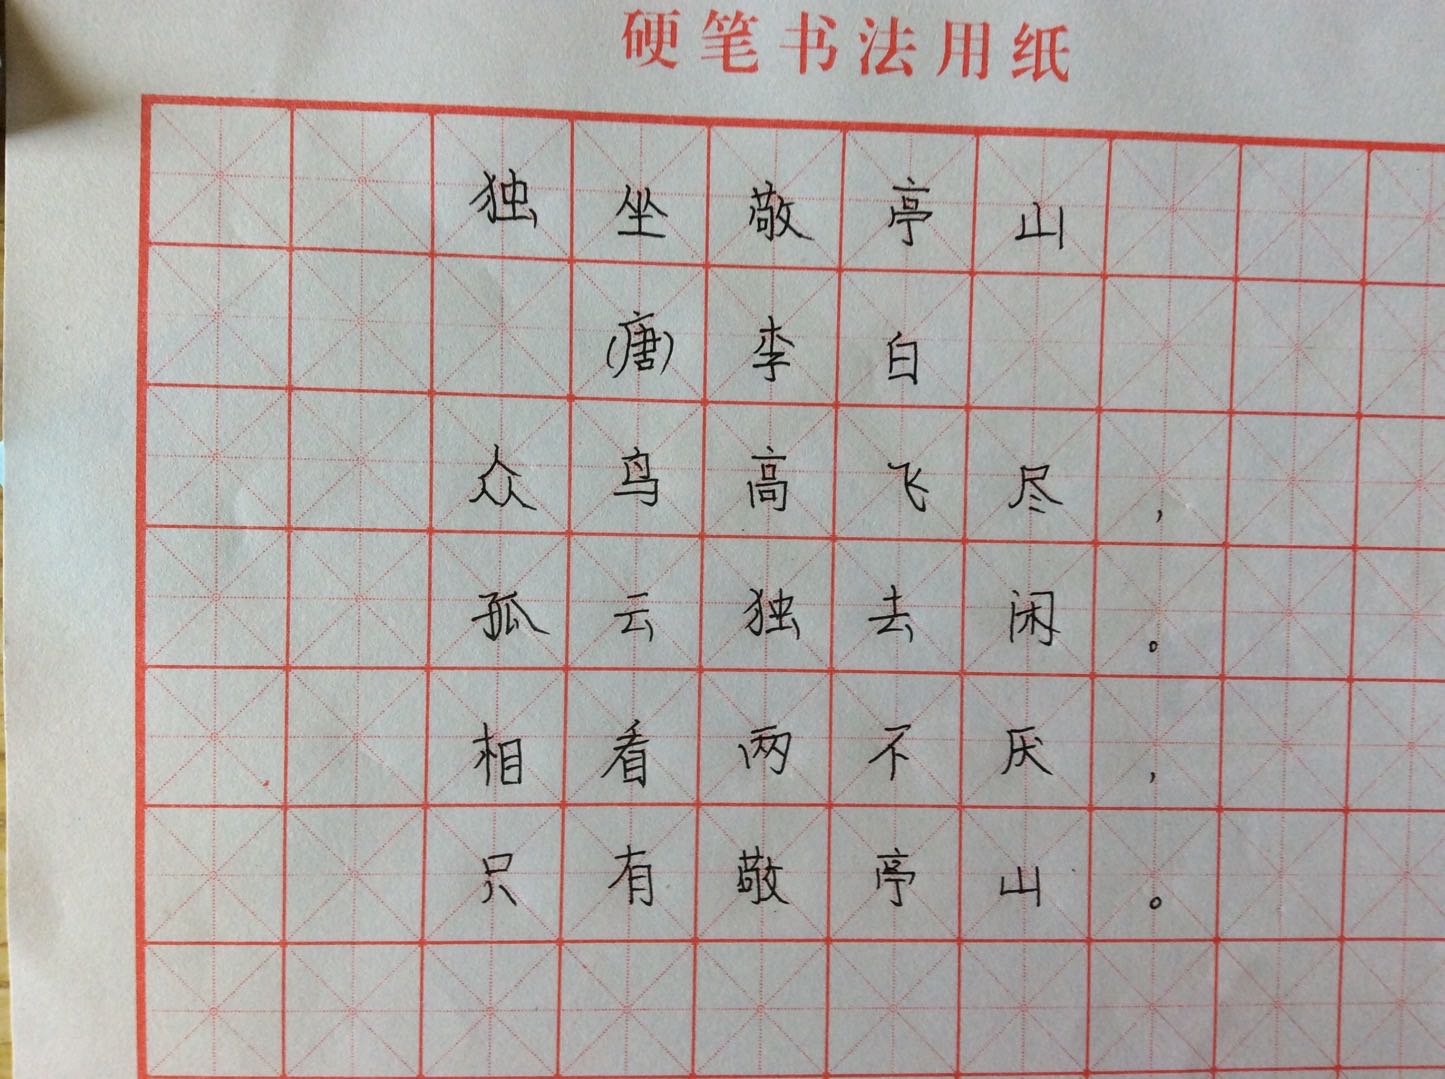 硬笔书法用纸
独坐敬亭山
(唐)李白
众鸟高飞尽，
孤云独去闲。
相看两不厌，
只有敬亭山。